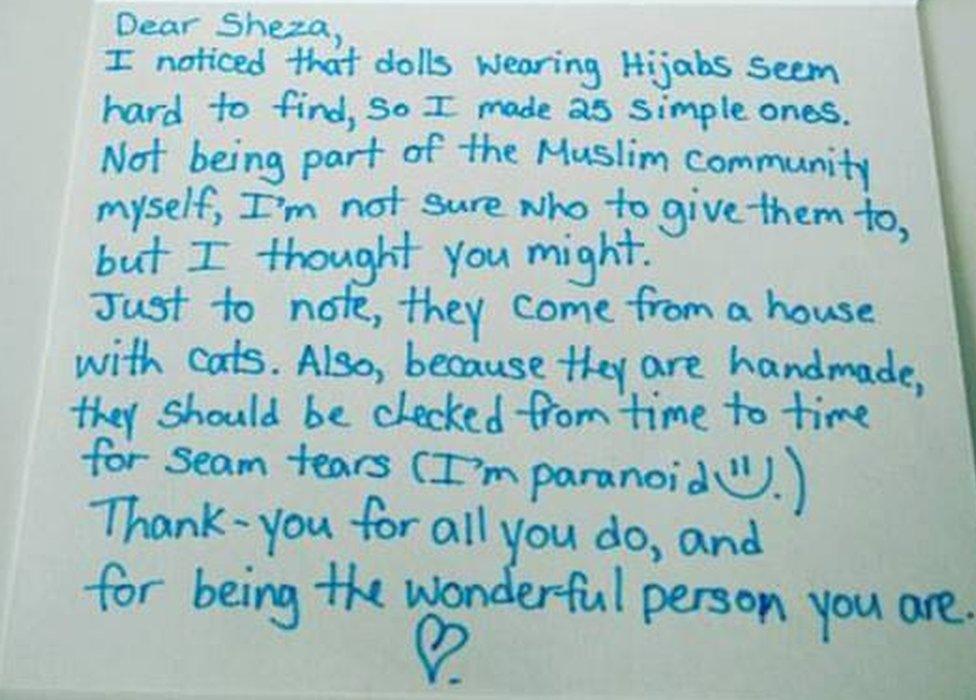 Dear Sheza,
I noticed that dolls wearing Hijabs seem
hard to find, so I made 25 simple ones.
Not being part of the Muslim community
myself, I'm not sure who to give them to,
but I thought you might.
Just to note, they come from a house
with cats. Also, because they are handmade,
they should be checked from time to time
for seam tears (I'm paranoid ü.)
Thank-you for all you do, and
for being the wonderful person you are.
♡.